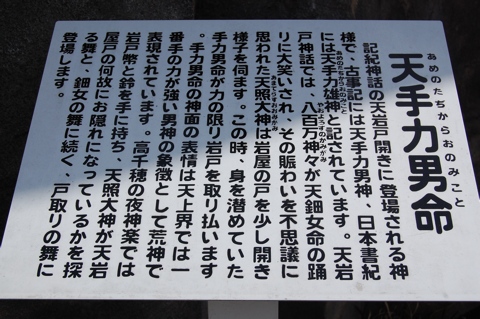 あめのたぢからおのみこと
天手力男命
記紀神話の天岩戸開きに登場される神
様で、古事記には天手力男神、日本書紀
には天手力雄神と記されています。天岩
戸神話では、八百万神々が天鈿女命の踊
りに大笑いされ、その賑わいを不思議に
思われた天照大神は岩屋の戸を少し開き
様子を伺ます。この時、身を潜めていた
手力男命が力の限り岩戸を取り払います
。手力男命の神面の表情は天上界では一
番手の力が強い男神の象徴として荒神で
表現されています。高千穂の夜神楽では
岩戸幣と鈴を手に持ち、天照大神が天岩
屋戸の何故にお隠れになっているかを探
る舞と、鈿女の舞に続く、戸取りの舞に
登場します。